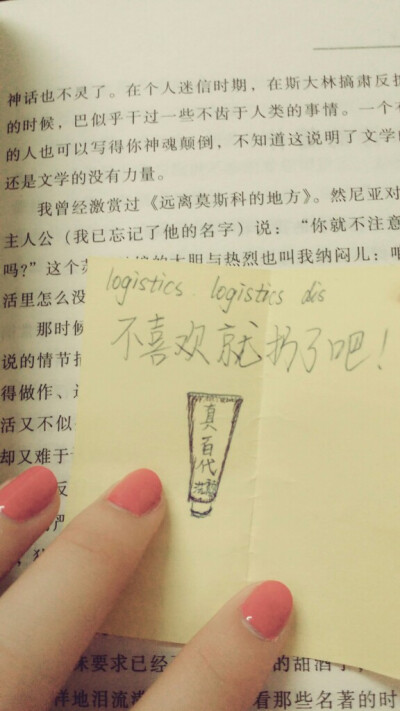 神话也不灵了。在个人迷信时期，在斯大林搞肃反扩
的时候，巴似乎干过一些不齿于人类的事情。一个不
的人也可以写得你神魂颠倒，不知道这说明了文学的
还是文学的没有力量。
我曾经激赏过《远离莫斯科的地方》。然尼亚对
主人公（我已忘记了他的名字）说：“你就不注意
吗？”这个苏 的大胆与热烈也叫我纳闷儿：吧
活里怎么没
那时候
说的情节
得做作、
活又不似
却又难于
反
严
logistics. logistics dis
不喜欢就扔了吧！
真百代
味要求已经 的甜酒了，
洋地泪流满 看那些名著的时